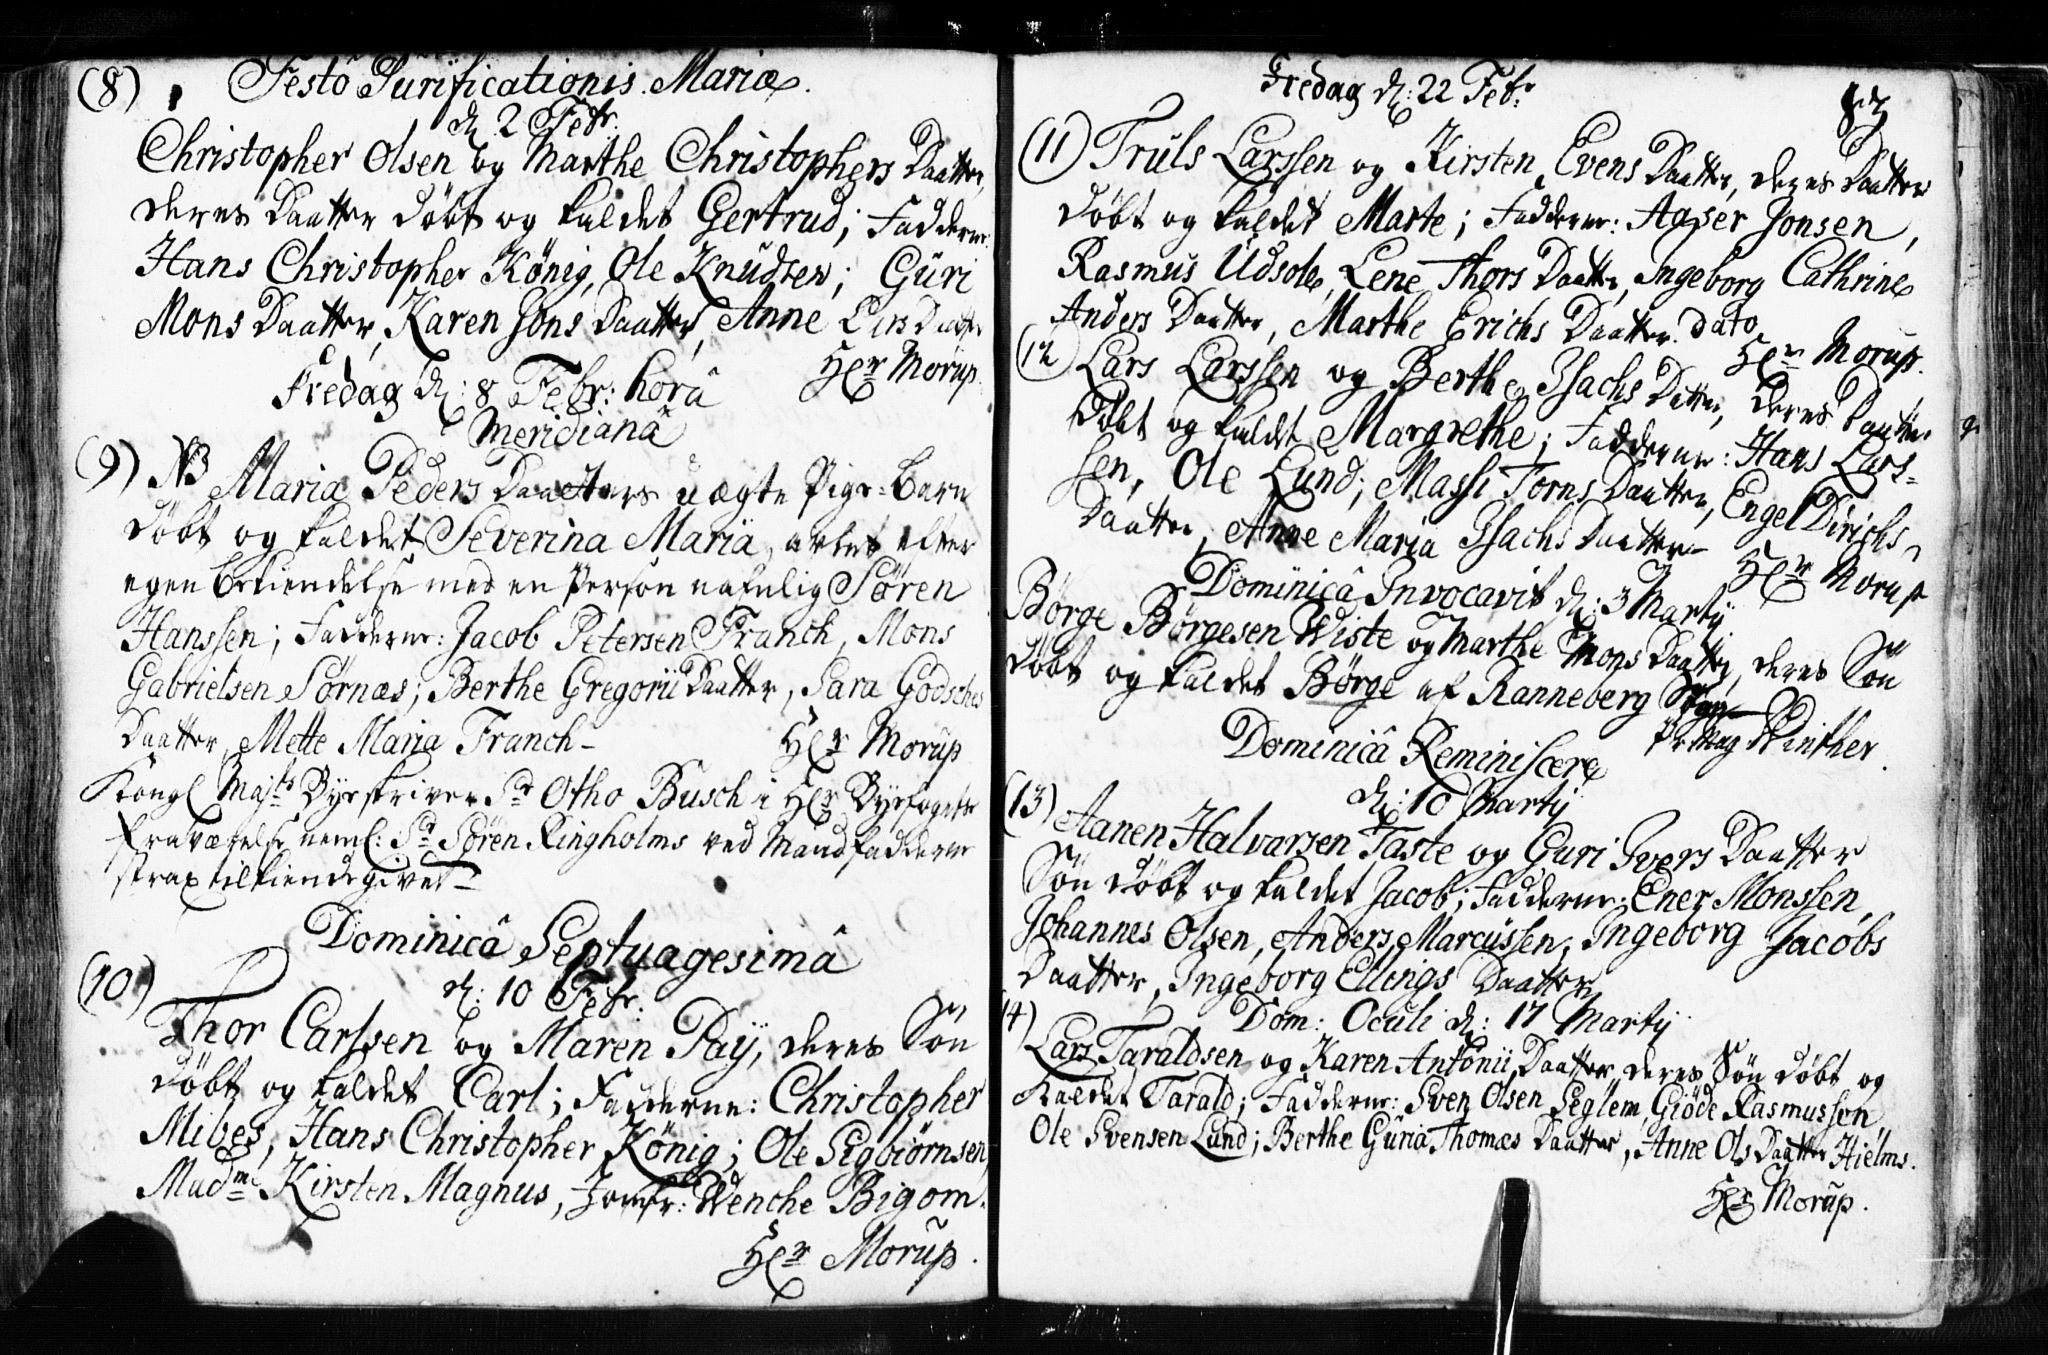 (8) Festo Purificationis Mariæ.
d. 2 Febr.
Christopher Olsen og Marthe Christophers Daatter,
deres Daatter döbt og kaldet Gertrud; Fadderne:
Hans Christopher König, Ole Knudsen; Guri
Mons Daatter, Karen Jons Daatter, Anne Lars Daatter
Hr Morup.
Fredag d: 8 Febr: hora
Meridiana
(9) NB Maria Peders Daatters uægte Pige-Barn
döbt og kaldet Severina Maria, avlet efter
egen bekiendelse med en Person nafnlig Sören
Hanssen; Fadderne: Jacob Petersen Franck, Mons
Gabrielsen Sörnæs; Berthe Gregorii Daatter, Sara Godsches
Daatter, Mette Maria Franch
Hr Morup
Kongl Majts Byeskriver Sr Otho Busch i Hr Byefogets
fraværelse neml: Sr Sören Ringholms ved Mandfadderne
strax tilkiendegivet
Dominicâ Septuagesimâ
d: 10 Febr:
(10) Thor Carlsen og Maren Paÿ, deres Sön
döbt og kaldet Carl; Fadderne: Christopher
Mibes, Hans Christopher König; Ole Sigbiörnsen,
Madme Kirsten Magnus, Jomfr: Wenche Bigom.
Hr Morup.
Fredag d: 22 Febr:
(11) Truls Larssen og Kirsten Evens Daatter, deres Daatter
döbt og kaldet Marte; Fadderne: Aaser Jonsen,
Rasmus Udsole, Lene Thors Daatter, Ingeborg Cathrine
Anders Daatter, Marthe Erichs Daatter. dato
Hr Morup.
(12) Lars Larssen og Berthe Isachs Datter, deres Daatter
döbt og kaldet Margrethe; Fadderne: Hans Lars-
sen, Ole Lund; Massi Torns Daatter, Engel Dirichs
Daatter, Anne Maria Isachs Daatter
Hr Morup
Dominicâ Invocavit d: 3 Martij
Börge Börgesen Wiste og Marthe Mons Daatter, deres Sön
döbt og kaldet Börge af Ranneberg
pr Mag Winther.
Dominicâ Reminiscere
d: 10 Martij
(13) Aanen Halvarsen Taste og Guri Ivers Daatter
Sön döbt og kaldet Jacob; Fadderne: Ener Monssen,
Johannes Olsen, Anders Marcussen; Ingeborg Jacobs
Daatter, Ingeborg Ellings Daatter
Dom: Oculi d: 17 Martij
14) Lars Taraldsen og Karen Antonii Daatter deres Sön döbt og
kaldet Tarald; Fadderne: Sven Olsen Seglem, Giöde Rasmussen,
Ole Svensen Lund; Berthe Guria Thomæs Daatter, Anne Ols Daatter Hielms.
Hr Morup.